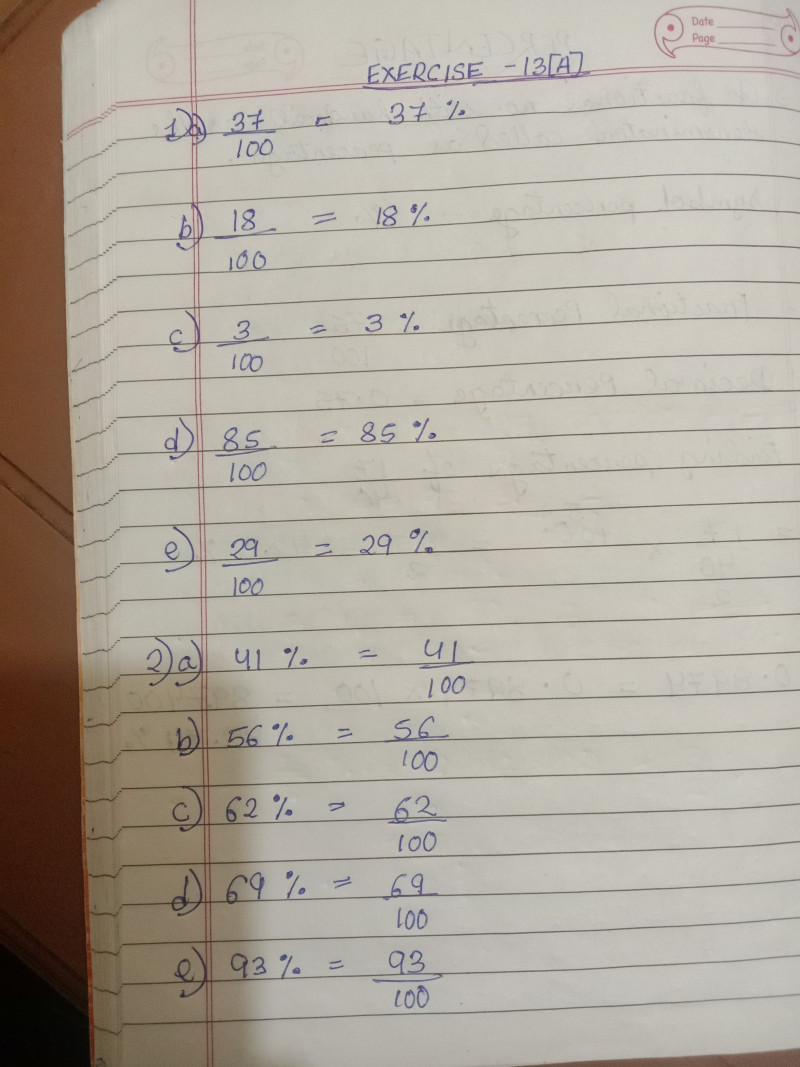 Date
Page
EXERCISE - 13[A]
1)a) 37/100 = 37%
b) 18/100 = 18%
c) 3/100 = 3%
d) 85/100 = 85%
e) 29/100 = 29%
2)a) 41% = 41/100
b) 56% = 56/100
c) 62% = 62/100
d) 69% = 69/100
e) 93% = 93/100